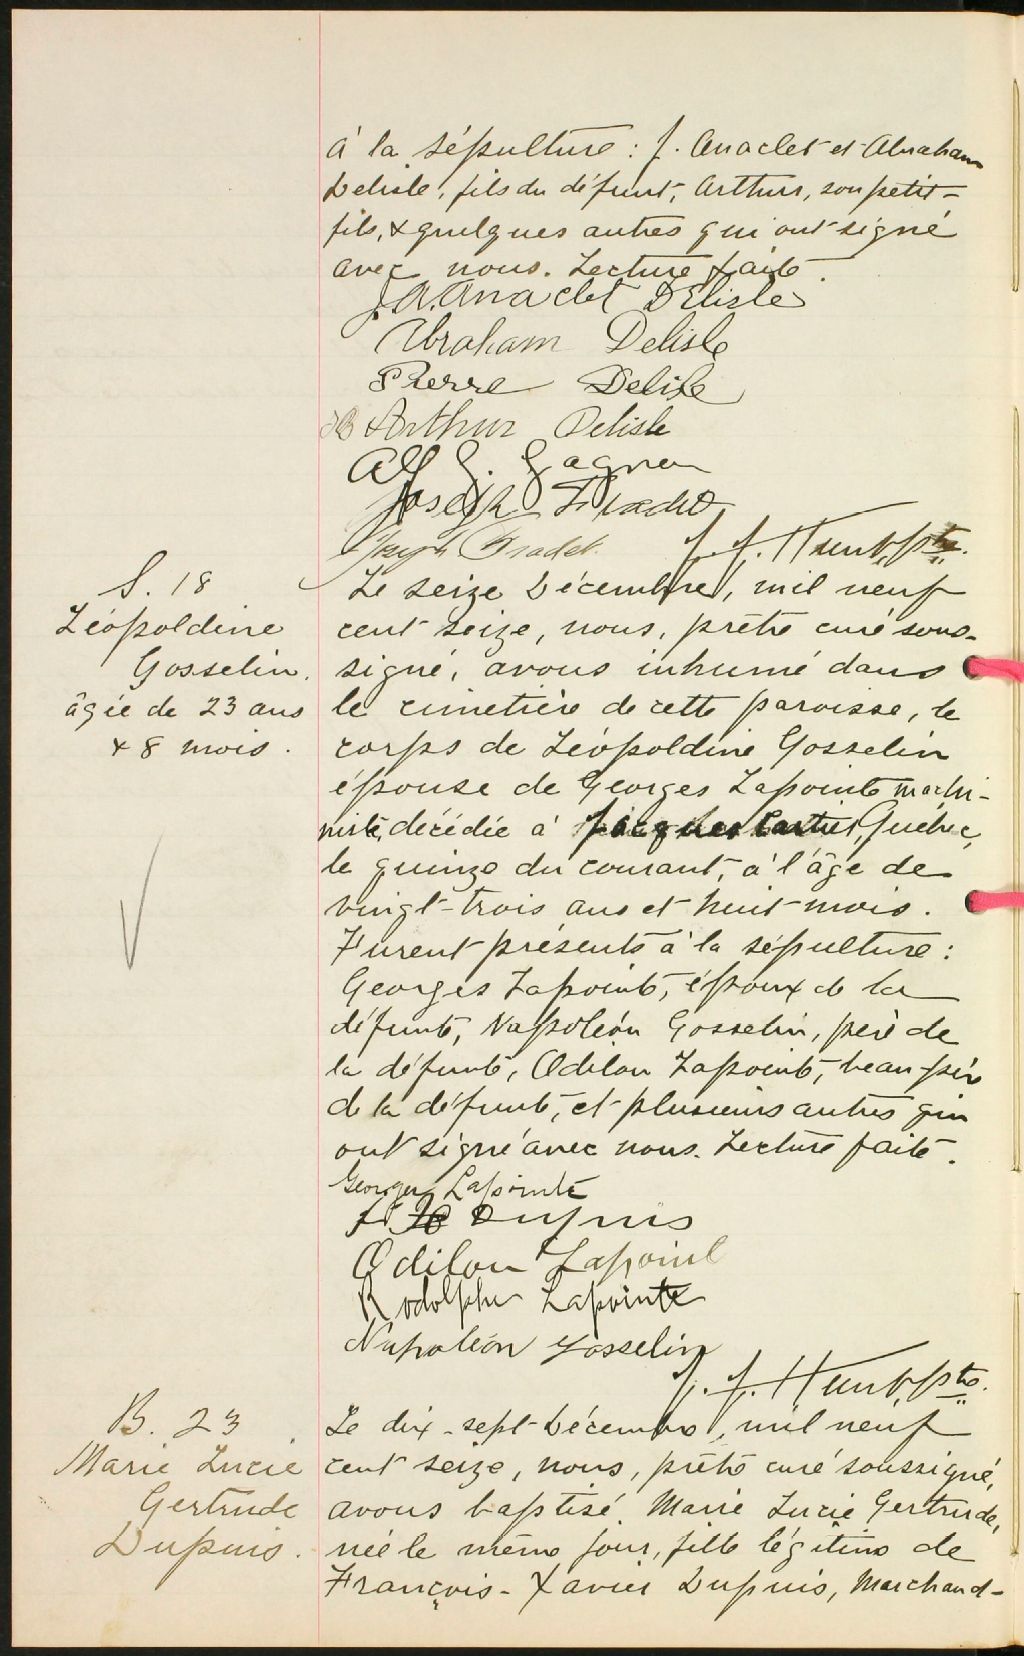 à la sépulture : J. Anaclet et Abraham
Delisle, fils du défunt, Arthur, son petit-
fils, & quelques autres qui ont signé
avec nous. Lecture faite.
J. A. Anaclet Delisle
Abraham Delisle
Pierre Delisle
Arthur Delisle
Alf G. Gagnon
Joseph
Joseph Pradet
J. J. Hunt, Ptre.
S. 18
Léopoldine
Gosselin.
âgée de 23 ans
& 8 mois.
Le seize Décembre, mil neuf
cent seize, nous, prêtre curé sous-
signé, avons inhumé dans
le cimetière de cette paroisse, le
corps de Léopoldine Gosselin
épouse de Georges Lapointe machi-
niste, décédée à Jacques Cartier, Québec,
le quinze du courant, à l'âge de
vingt-trois ans et huit mois.
Furent présents à la sépulture :
Georges Lapointe, époux de la
défunte, Napoléon Gosselin, père de
la défunte, Odilon Lapointe, beau-père
de la défunte, et plusieurs autres qui
ont signé avec nous. Lecture faite.
Georges Lapointe
F X Dupuis
Odilon Lapointe
Rodolphe Lapointe
Napoléon Gosselin
J. J. Hunt, Ptre.
B. 23
Marie Lucie
Gertrude
Dupuis.
Le dix-sept Décembre, mil neuf
cent seize, nous, prêtre curé soussigné,
avons baptisé Marie Lucie Gertrude,
née le même jour, fille légitime de
François-Xavier Dupuis, Marchand-